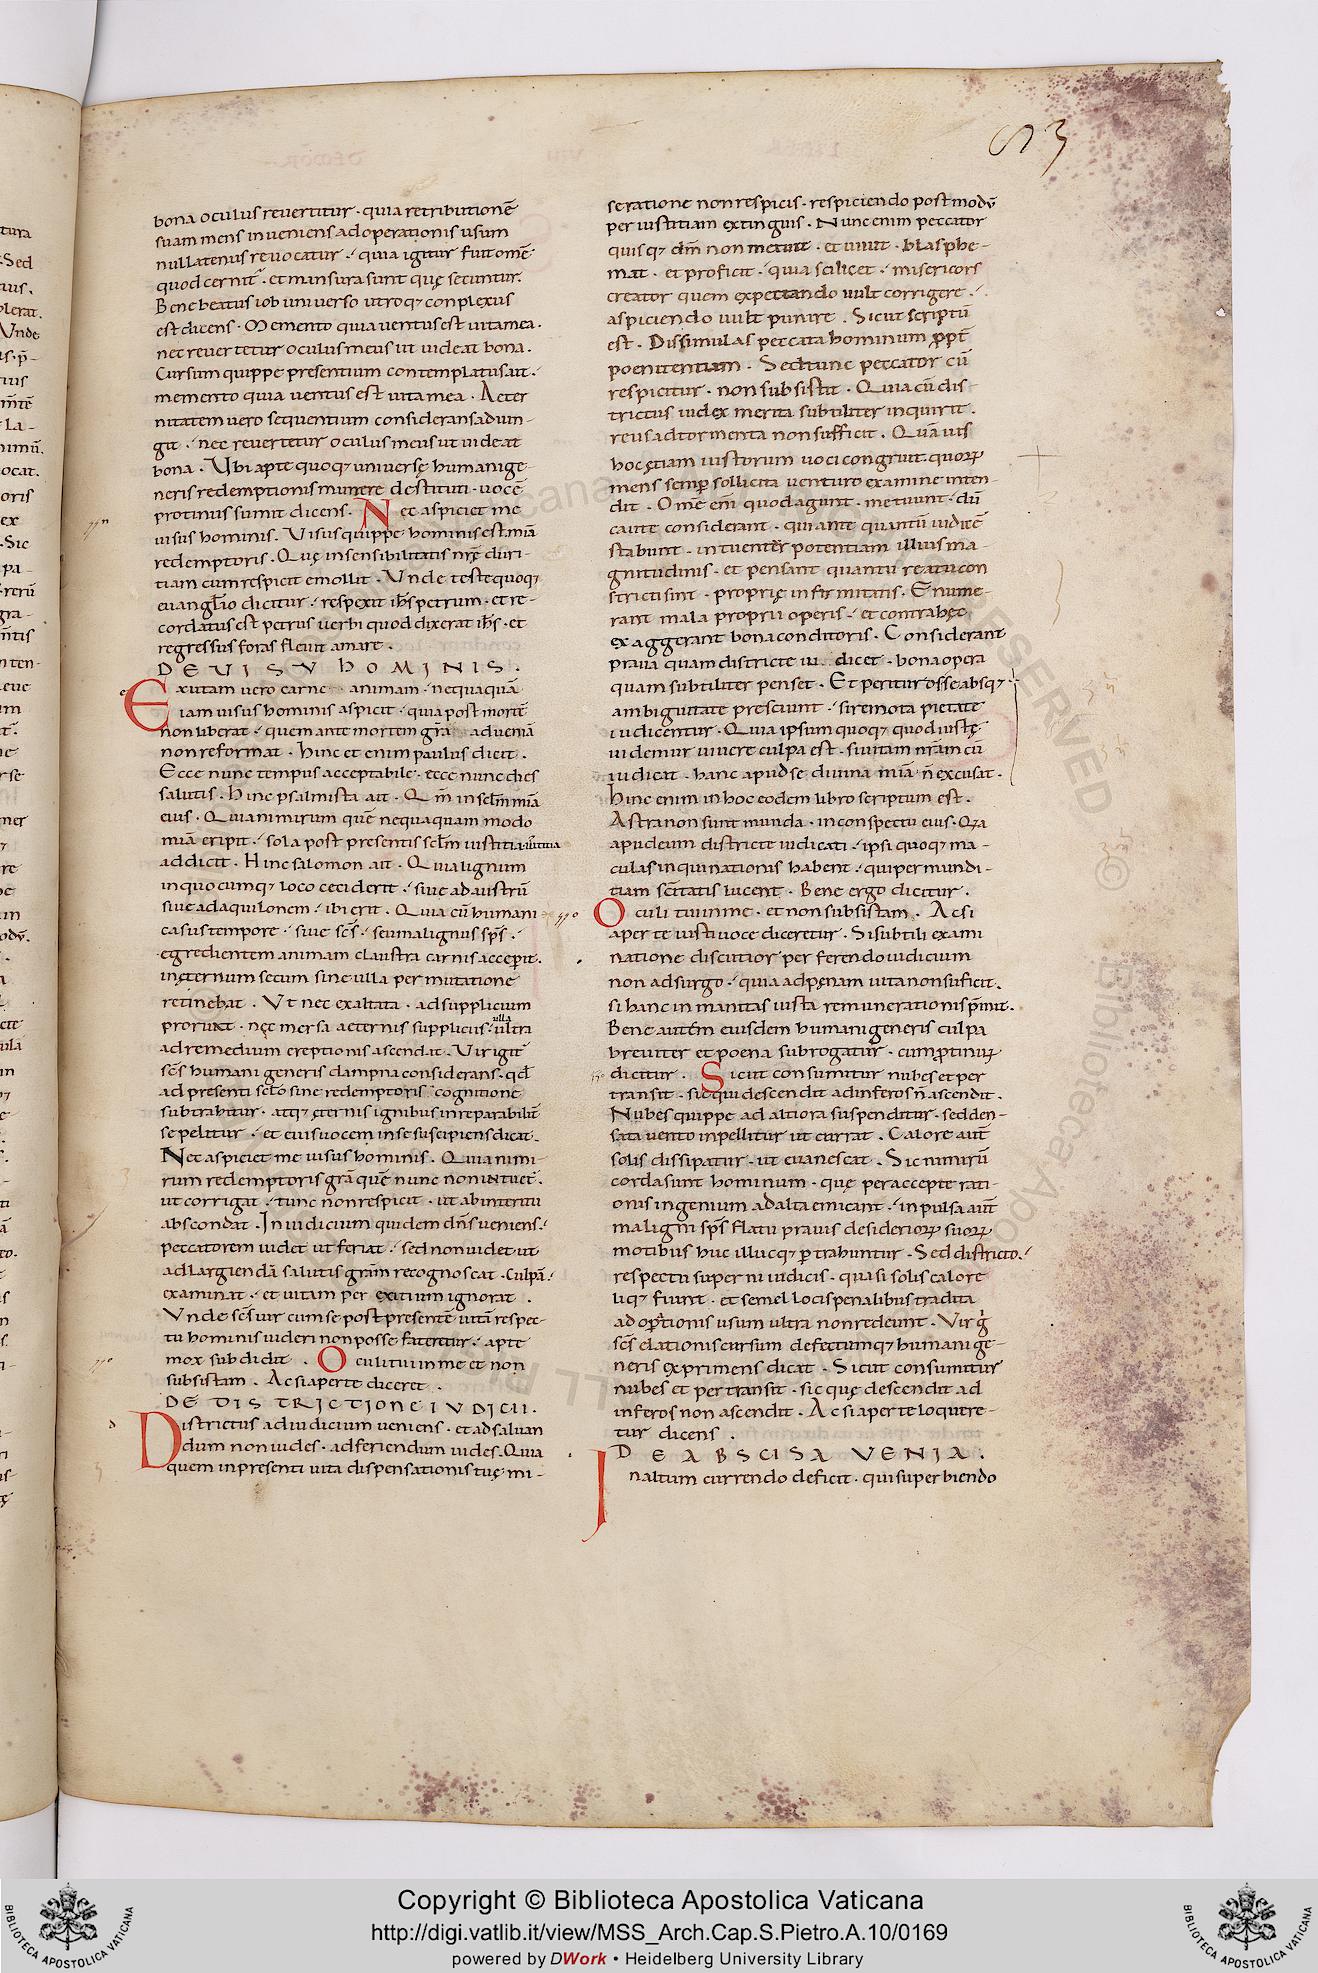 83
bona oculus revertitur · quia retributionē
suam mens inveniens ad operationis usum
nullatenus revocatur · quia igitur fuit omē
quod cernit̄ · et mansura sunt quę secuntur.
Bene beatus iob universo utroq; conplexus
est dicens · Memento quia ventus est vita mea .
nec revertetur oculus meus ut videat bona .
Cursum quippe presentium contemplatus ait .
memento quia ventus est vita mea . Aeter
nitatem vero sequentium considerans adiun-
git · nec revertetur oculus meus ut videat
bona . Ubi apte quoq; universę humani ge-
neris redemptionis munere destituti · vocē
protinus sumit dicens . Nec aspiciet me
visus hominis . Visus quippe hominis est mīa
redemptoris . Quę insensibilitatis nrē duri-
tiam cum respicit emollit . Unde teste quoq;
evanglio dicitur · respexit ihs petrum · et re-
cordatus est petrus verbi quod dixerat ihs · et
regressus foras flevit amare .
DE VISV HOMINIS .
Exutam vero carne animam · nequaquā
iam visus hominis aspicit · quia post mortē
non liberat · quem ante mortem grā ad veniā
non reformat . Hinc et enim paulus dicit .
Ecce nunc tempus acceptabile · ecce nunc dies
salutis . Hinc psalmista ait . Qm̄ in seclm mīa
eius . Quia nimirum quē nequaquam modo
mīa eripit · sola post presentis seclm iustitia
addicit . Hinc salomon ait . Quia lignum
in quocumq; loco ceciderit · sive ad austrū
sive ad aquilonem · ibi erit . Quia cū humani
casus tempore · sive scs̄ · seu malignus sps̄ ·
egredientem animam claustra carnis acceperit .
in ęternum secum sine ulla permutatione
retinebat . Ut nec exaltata · ad supplicium
proruat · nec mersa aeternis suppliciis · ultra
ad remedium ereptionis ascendat . Vir igit̄
scs̄ humani generis dampna considerans · qd̄
ad presenti seclo sine redemptoris cognitione
subtrahitur · atq; ęternis ignibus inreparabilit̄
sepelitur · et eius vocem in se suscipiens dicat .
Nec aspiciet me visus hominis . Quia nimi-
rum redemptoris grā quē nunc non intuet̄
ut corrigat · tunc non respicit · ut ab interitu
abscondat . In iudicium quidem dn̄s veniens ·
peccatorem videt ut feriat · sed non videt ut
ad largiendā salutis grām recognoscat . Culpā
examinat · et vitam per exitium ignorat .
Unde scs̄ vir cum se post presentē vitā respec-
tu hominis videri non posse fateretur · apte
mox subdidit . Oculi tui in me et non
subsistam . Ac si aperte diceret .
DE DISTRICTIONE IVDICII .
Districtus ad iudicium veniens · et ad salvan
dum non vides · ad feriendum vides . Quia
quem in presenti vita dispensationis tuę mi-
seratione non respicis · respiciendo postmodū
per iustitiam extinguis . Nunc enim peccator
quisq; dm̄ non metuit · et vivit · blasphe-
mat · et proficit · quia scilicet · misericors
creator quem expectando vult corrigere ·
aspiciendo vult punire . Sicut scriptū
est . Dissimulas peccata hominum propt̄
poenitentiam . Sed tunc peccator cū
respicitur · non subsistit . Quia cū dis
trictus iudex merita subtiliter inquirit .
reus ad tormenta non sufficit . Quā vis
hoc ętiam iustorum voci congruit · quorum
mens semp sollicita venturo examine inten-
dit . Ome eni quod agunt · metuunt · dū
caute considerant · qui ante quantū iudicē
stabunt . intuentur potentiam illius ma-
gnitudinis · et pensant quantu reatu con
stricti sint · proprię infirmitatis . Enume-
rant mala proprii operis · et contra hęc
exaggerant bona conditoris . Considerant
prava quam districte iudicet · bona opera
quam subtiliter penset . Et perituros se absq;
ambiguitate presciunt · si remota pietate
iudicentur . Quia ipsum quoq; quod iuste
videmur vivere culpa est · si vitam nrām cū
iudicat · hanc apud se divina mīa n̄ excusat .
Hinc enim in hoc eodem libro scriptum est .
Astra non sunt munda · in conspectu eius . Quia
apud eum districte iudicati · ipsi quoq; ma-
culas inquinationis habent · qui per mundi-
tiam scītatis lucent . Bene ergo dicitur .
Oculi tui in me · et non subsistam . Ac si
aperte iusti voce diceretur . Si subtili exami
natione discutior perferendo iudicium
non adsurgo · quia ad pęnam vita non suficit .
si hanc inmanitas iusta remunerationis p̄mit .
Bene autem eiusdem humani generis culpa
breviter et poena subrogatur · cum protinus
dicitur . Sicut consumitur nubes et per
transit · sic qui descendit ad inferos n̄ ascendit .
Nubes quippe ad altiora suspenditur · sed den-
sata vento inpellitur ut currat . Calore aut̄
solis dissipatur · ut evanescat . Sic nimirū
corda sunt hominum · quę per accepte rati-
onis ingenium ad alta emicant · inpulsa aut̄
maligni sps̄ flatu pravis desideriorum suorum
motibus huc illucq; p̱trahuntur . Sed districto
respectu superni iudicis · quasi solis calore
liq; fiunt · et semel locis penalibus tradita
ad op̱tionis usum ultra non redeunt . Vir g̊
scs̄ elationis cursum defectumq; humani ge-
neris exprimens dicat . Sicut consumitur
nubes et pertransit · sic quę descendit ad
inferos non ascendit . Ac si aperte loquere-
tur dicens .
DE ABSCISA VENIA .
In altum currendo deficit · qui superbiendo
Copyright © Biblioteca Apostolica Vaticana
http://digi.vatlib.it/view/MSS_Arch.Cap.S.Pietro.A.10/0169
powered by DWork • Heidelberg University Library
BIBLIOTECA APOSTOLICA VATICANA
BIBLIOTECA APOSTOLICA VATICANA